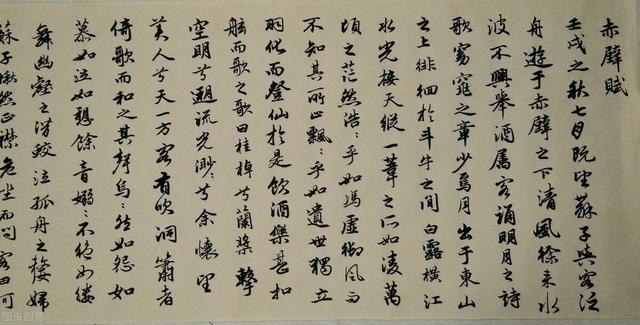 赤壁賦
壬戌之秋七月既望蘇子與客泛
舟遊于赤壁之下清風徐來水
波不興舉酒屬客誦明月之詩
歌窈窕之章少焉月出于東山
之上徘徊於斗牛之間白露橫江
水光接天縱一葦之所如凌萬
頃之茫然浩〻乎如馮虛御風而
不知其所止飄〻乎如遺世獨立
羽化而登仙於是飲酒樂甚扣
舷而歌之歌曰桂棹兮蘭槳擊
空明兮遡流光渺〻兮余懷望
美人兮天一方客有吹洞簫者
倚歌而和之其聲烏〻然如怨如
慕如泣如愬餘音嫋〻不絕如縷
舞幽壑之潛蛟泣孤舟之嫠婦
蘇子愀然正襟危坐而問客曰何
图虫创意